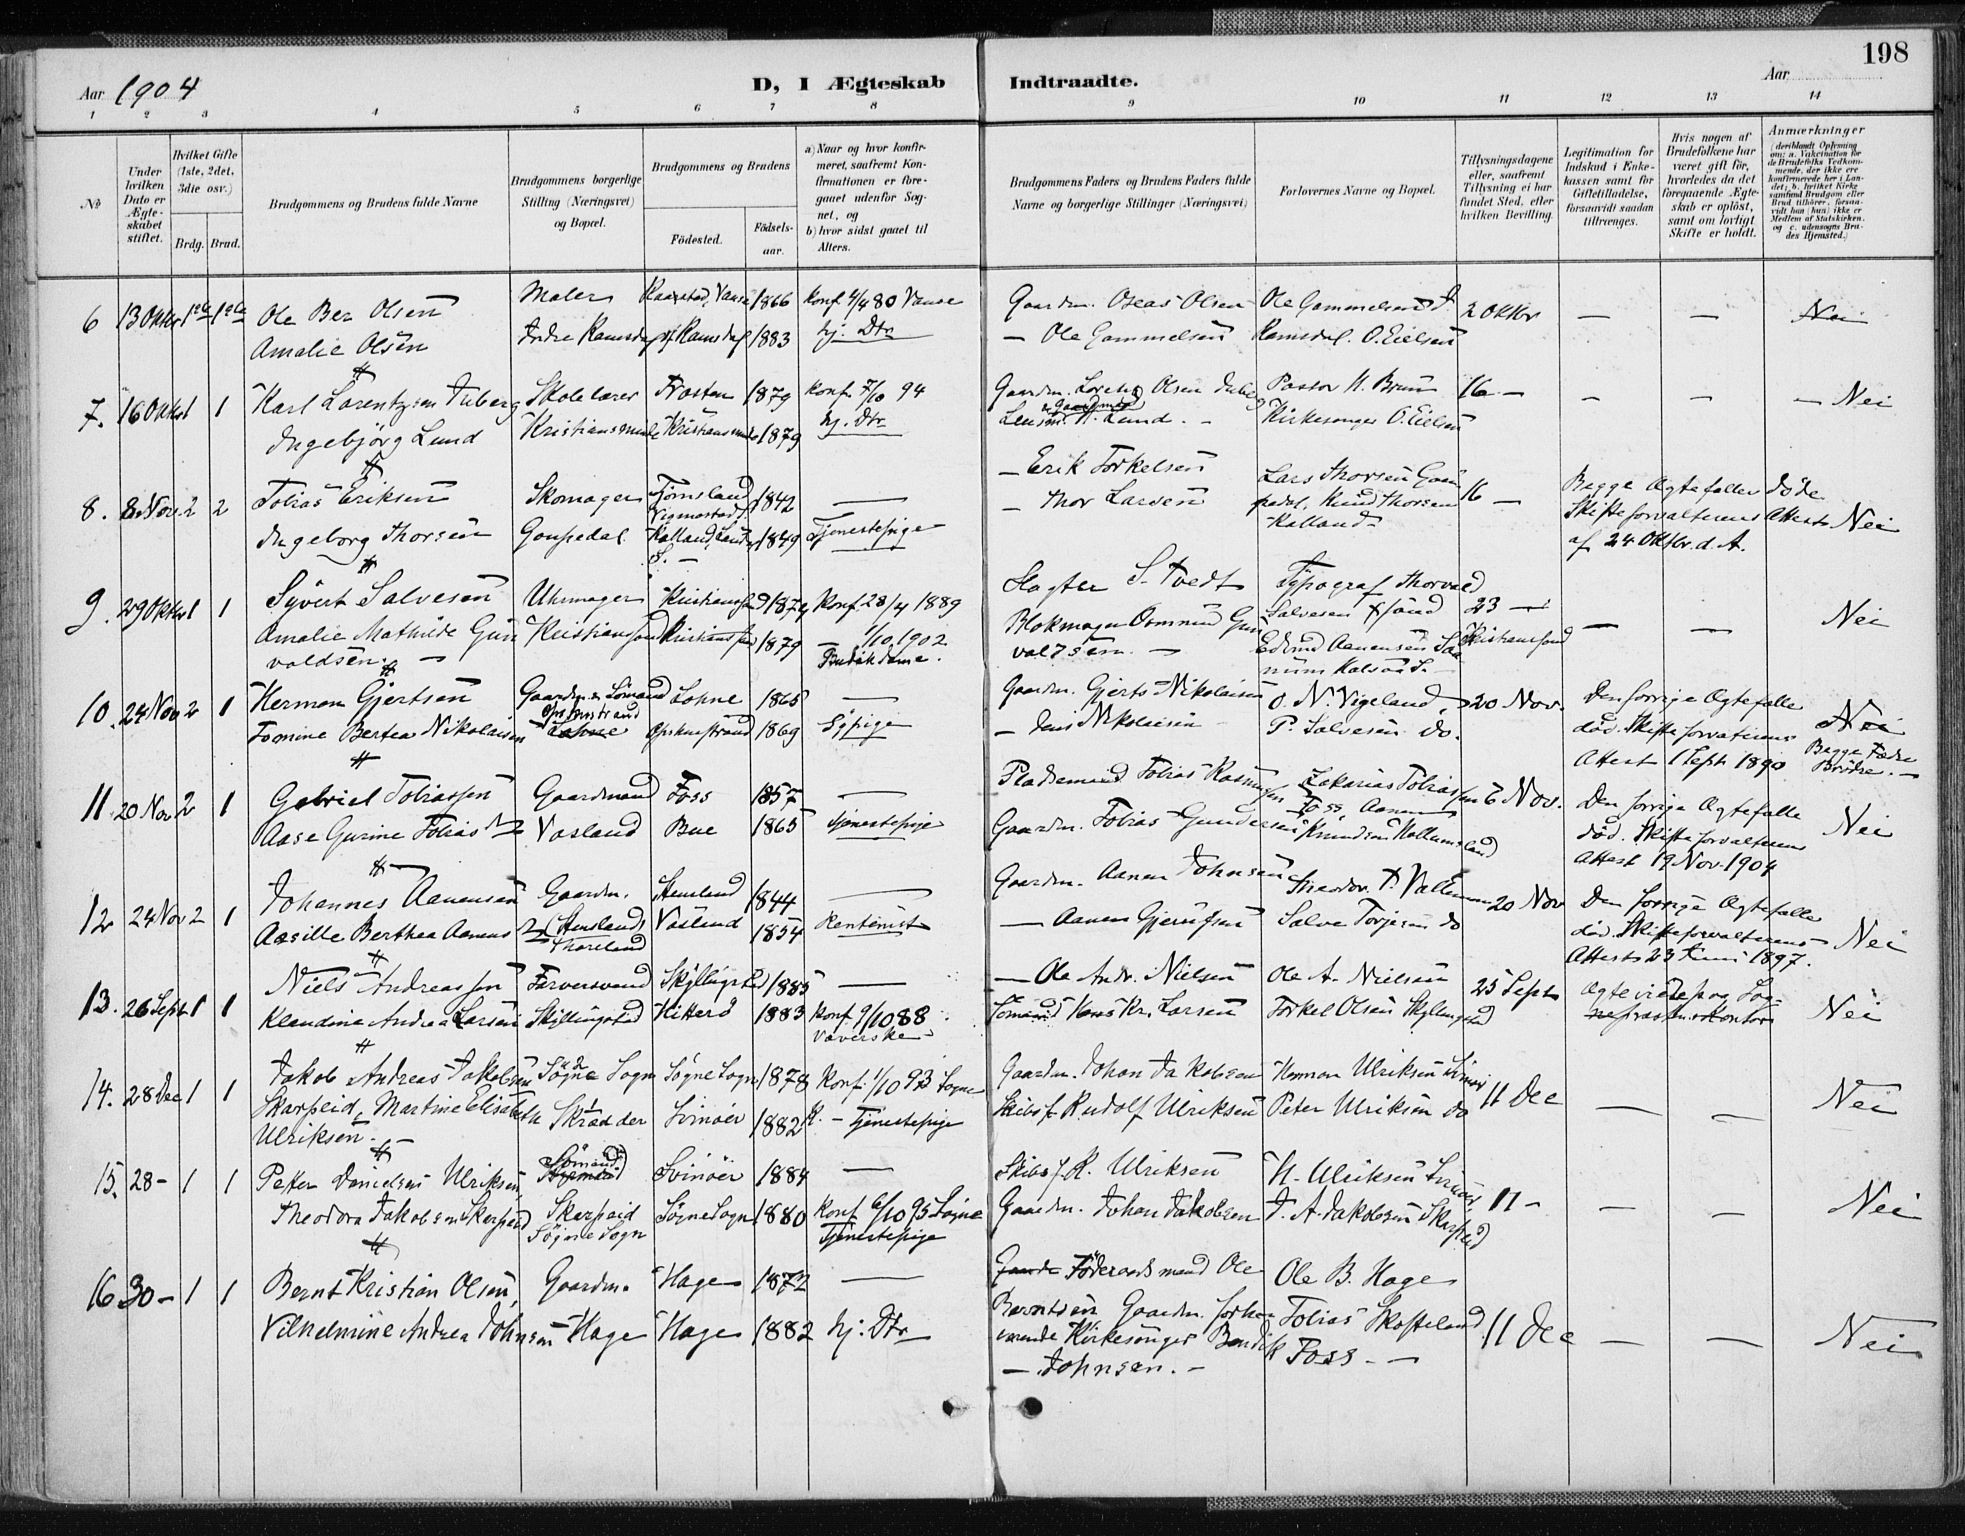 198
Aar 1904
D, I Ægteskab Indtraadte.
Aar
1 2 3 4 5 6 7 8 9 10 11 12 13 14
No
Under hvilken Dato er Ægteskabet stiftet.
Hvilket Gifte (1ste, 2det, 3die osv.)
Brdg. Brud.
Brudgommens og Brudens fulde Navne
Brudgommens borgerlige Stilling (Næringsvei) og Bopæl.
Brudgommens og Brudens
Födested.
Födselsaar.
a) Naar og hvor konfirmeret, saafremt Konfirmationen er foregaaet udenfor Sognet, og
b) hvor sidst gaaet til Alters.
Brudgommens Faders og Brudens Faders fulde Navne og borgerlige Stillinger (Næringsvei)
Forlovernes Navne og Bopæl.
Tillysningsdagene eller, saafremt Tillysning ei har fundet Sted, efter hvilken Bevilling.
Legitimation for Indskud i Enkekassen samt for Giftetilladelse, forsaavidt saadan tiltrænges.
Hvis nogen af Brudefolkene har været gift för, hvorledes da det foregaaende Ægteskab er oplöst, samt om lovligt Skifte er holdt.
Anmærkninger
(deriblandt Oplysning om: a. Vakcination for de Brudefolks Vedkommende, der ikke ere konfirmerede her i Landet; b. hvilket Kirkesamfund Brudgom eller Brud tilhörer, forsaavidt han (hun) ikke er Medlem af Statskirken, og c. udensogns Brudes Hjemsted.)
6 13 Oktbr 1ste 1ste Ole Ber Olsen Maler Vanse 1866 Konf 4/4 80 Vanse Gaardm. Oseas Olsen Ole Gammelsen 2 Oktbr — — Nei
Amalie Olsen Indre Ramsdal Ramsdal 1883 hj. Dtr — Ole Gammelsen Ramsdal. O. Eielsen
7. 16 Oktbr 1 1 Karl Lorentzsen Tuberg Skolelærer Frosten 1879 Konf. 7/10 94 Gaardm. Olsen Pastor H. Brun 16 — — — — Nei
Ingebjörg Lund Kristiansund Kristiansund 1879 hj. Dtr Lensm. & Gaardmd Lund. Kirkesanger O. Eielsen
8. 8 Nov. 2 2 Tobias Eriksen Skomager Tjömsland Vigmostad 1842 — — Erik Torkelsen Lars Thorsen 16 — Begge Ægtefæller döde Nei
Ingeborg Thorsen Goupedal Kalland, 1849 Tjenestepige — Thor Larsen Knud Thorsen Kalland Skifteforvalterens Attest
af 24 Oktbr. d. A.
9. 29 Oktbr 1 1 Syvert Salvesen Uhrmager Kristianssand 1874 Konf 28/4 1889 S. Tvedt Typograf Thorvald Salvesen 23 — — — Nei
Amalie Mathilde Gunvaldsen Kristianssand Kristianssand 1879 — 1/10 1902 Butikdame. Blokmager Osmund Gunvaldsen Aanensen Kristianssand
10. 24 Nov 2 1 Herman Gjertsen Gaardm. & Sömand Lohne 1865 — Gaardm. Gjerts Nikolaisen O. N. Vigeland 20 Nov. Den forrige Ægtefælle Nei
Tomine Bertea Nikolaisen Lohne 1869 Sypige — Jens Nikolaisen P. Salvesen do. död. Skifteforvalterens Attest 1 Sept 1890 Begge Fædre Brödre.
11 20 Nov 2 1 Gabriel Tobiassen Gaardmand Foss 1857 — Pladsemand Tobias Zakarias Tobiassen Foss 6 Nov. Den forrige Ægtefælle Nei
Aase Gurine Tobiasdtr Vasland Bue 1865 Tjenestepige Gaardm. Tobias Gundersen Aanen Knudsen död. Skifteforvalterens Attest 19 Nov. 1904
12 24 Nov 2 1 Johannes Aanensen Gaardm. Stensland 1844 — Gaardm. Aanen Johnsen Theodor T. 20 Nov Den forrige Ægtefælle Nei
Aasille Berthea Stensland Vasland 1854 Rentenist — Aanen Salve Torjesen do död. Skifteforvalterens Attest 23 Juni 1897.
13. 26 Sept 1 1 Niels Andreassen Farversvend Skyllingstad 1885 — — Ole Andr. Nielsen Ole A. Nielsen 25 Sept Ægteviet Nei
Klaudine Andrea Larsen Skyllingstad Hitterö 1883 Konf. 9/10 88 Væverske Sömand Hans Kr. Larsen Torkel Olsen Skyllingstad
14. 28 Dec 1 1 Jakob Andreas Jakobsen Söndre Sogn Sögne Sogn 1878 Konf. 1/10 93 Sogne Gaardm. Johan Jakobsen Herman Ulriksen Svinöer 11 Dec — — Nei
Skarpeid, Martine Elisabeth Ulriksen. Skrædder Svinöer 1882 — Tjenestepige Skibsf. Rudolf Ulriksen Peter Ulriksen do
15. 28 — 1 1 Petter Danielsen Ulriksen Sömand Svinöer 1884 — Skibsf. R. Ulriksen H. Ulriksen Svinöer 11 — — — Nei
Theodora Jakobsen Skarpeid Skarpeid Sögne Sogn Sögne Sogn 1880 Konf 6/10 95 Sogne Tjenestepige Gaardm. Johan Jakobsen J. A. Jakobsen Skarpeid
16 30 — 1 1 Bernt Kristian Olsen, Gaardm. Hage 1872 — Föderaadsmand Ole Berntsen Ole B. Hage
Vilhelmine Andrea Johnsen Hage Hage 1882 hj. Dtr Gaardm. forhenværende Kirkesanger Bendik Johnsen. Tobias Skofteland Foss. 11 Dec — — Nei